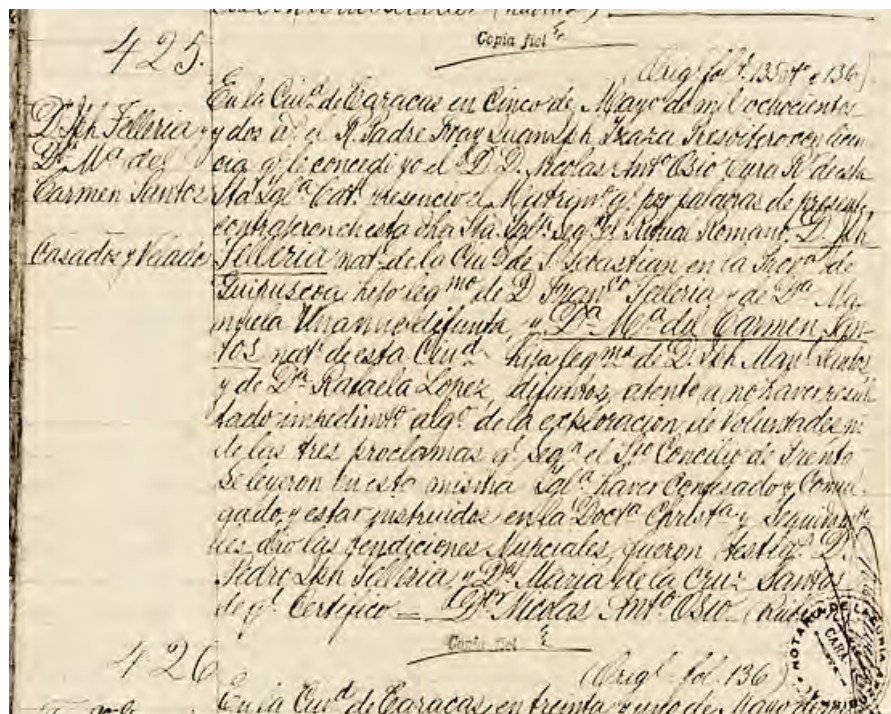 Copia fiel
425.
(Orig.l fol.s 135 vt.o e 136)
D. Jph Telleria y
D.a M.a del
Carmen Santos
Casados y Velados
En la Ciu.d de Caracas en Cinco de Mayo de mil ochocientos
y dos a.s el R. Padre Fray Juan Jph Ixaza Presvitero con licen
cia q.e le concedi yo el D.r D. Nicolas Ant.o Osio Cura R.r de esta
Sta Igl.a Cat.l presencio el Matrim.o q.e por palabras de presente
contrageron en esta dha Sta. Igl.a seg.n el Ritual Romano, D. Jph
Telleria nat.l de la Ciu.d de S. Sebastian en la Prov.a de
Guipuscoa, hijo leg.mo de D. Fran.co Telleria y de D.a Ma
nuela difunta, y D.a M.a del Carmen San-
tos nat.l de esta Ciu.d hija leg.ma de D. Jph Man.l Santos
y de D.a Rafaela Lopez, difuntos, atento a no haver resul
tado impedim.to alg.o de la exploracion de Voluntades ni
de las tres proclamas q.e seg.n el S.to Concilio de Trento
se leyeron en esta misma Igl.a haver Confesado y Comul
gado, y estar instruidos en la Doct.a Christ.a y
les dio las bendiciones Nupciales, fueron testig.s D.
Pedro Jph Telleria, y D.a Maria de la Cruz Santos
de q.e Certifico = D.r Nicolas Ant.o Osio
Copia fiel
426
(Orig.l fol. 136)
En la Ciu.d de Caracas, en treinta y uno de Mayo de